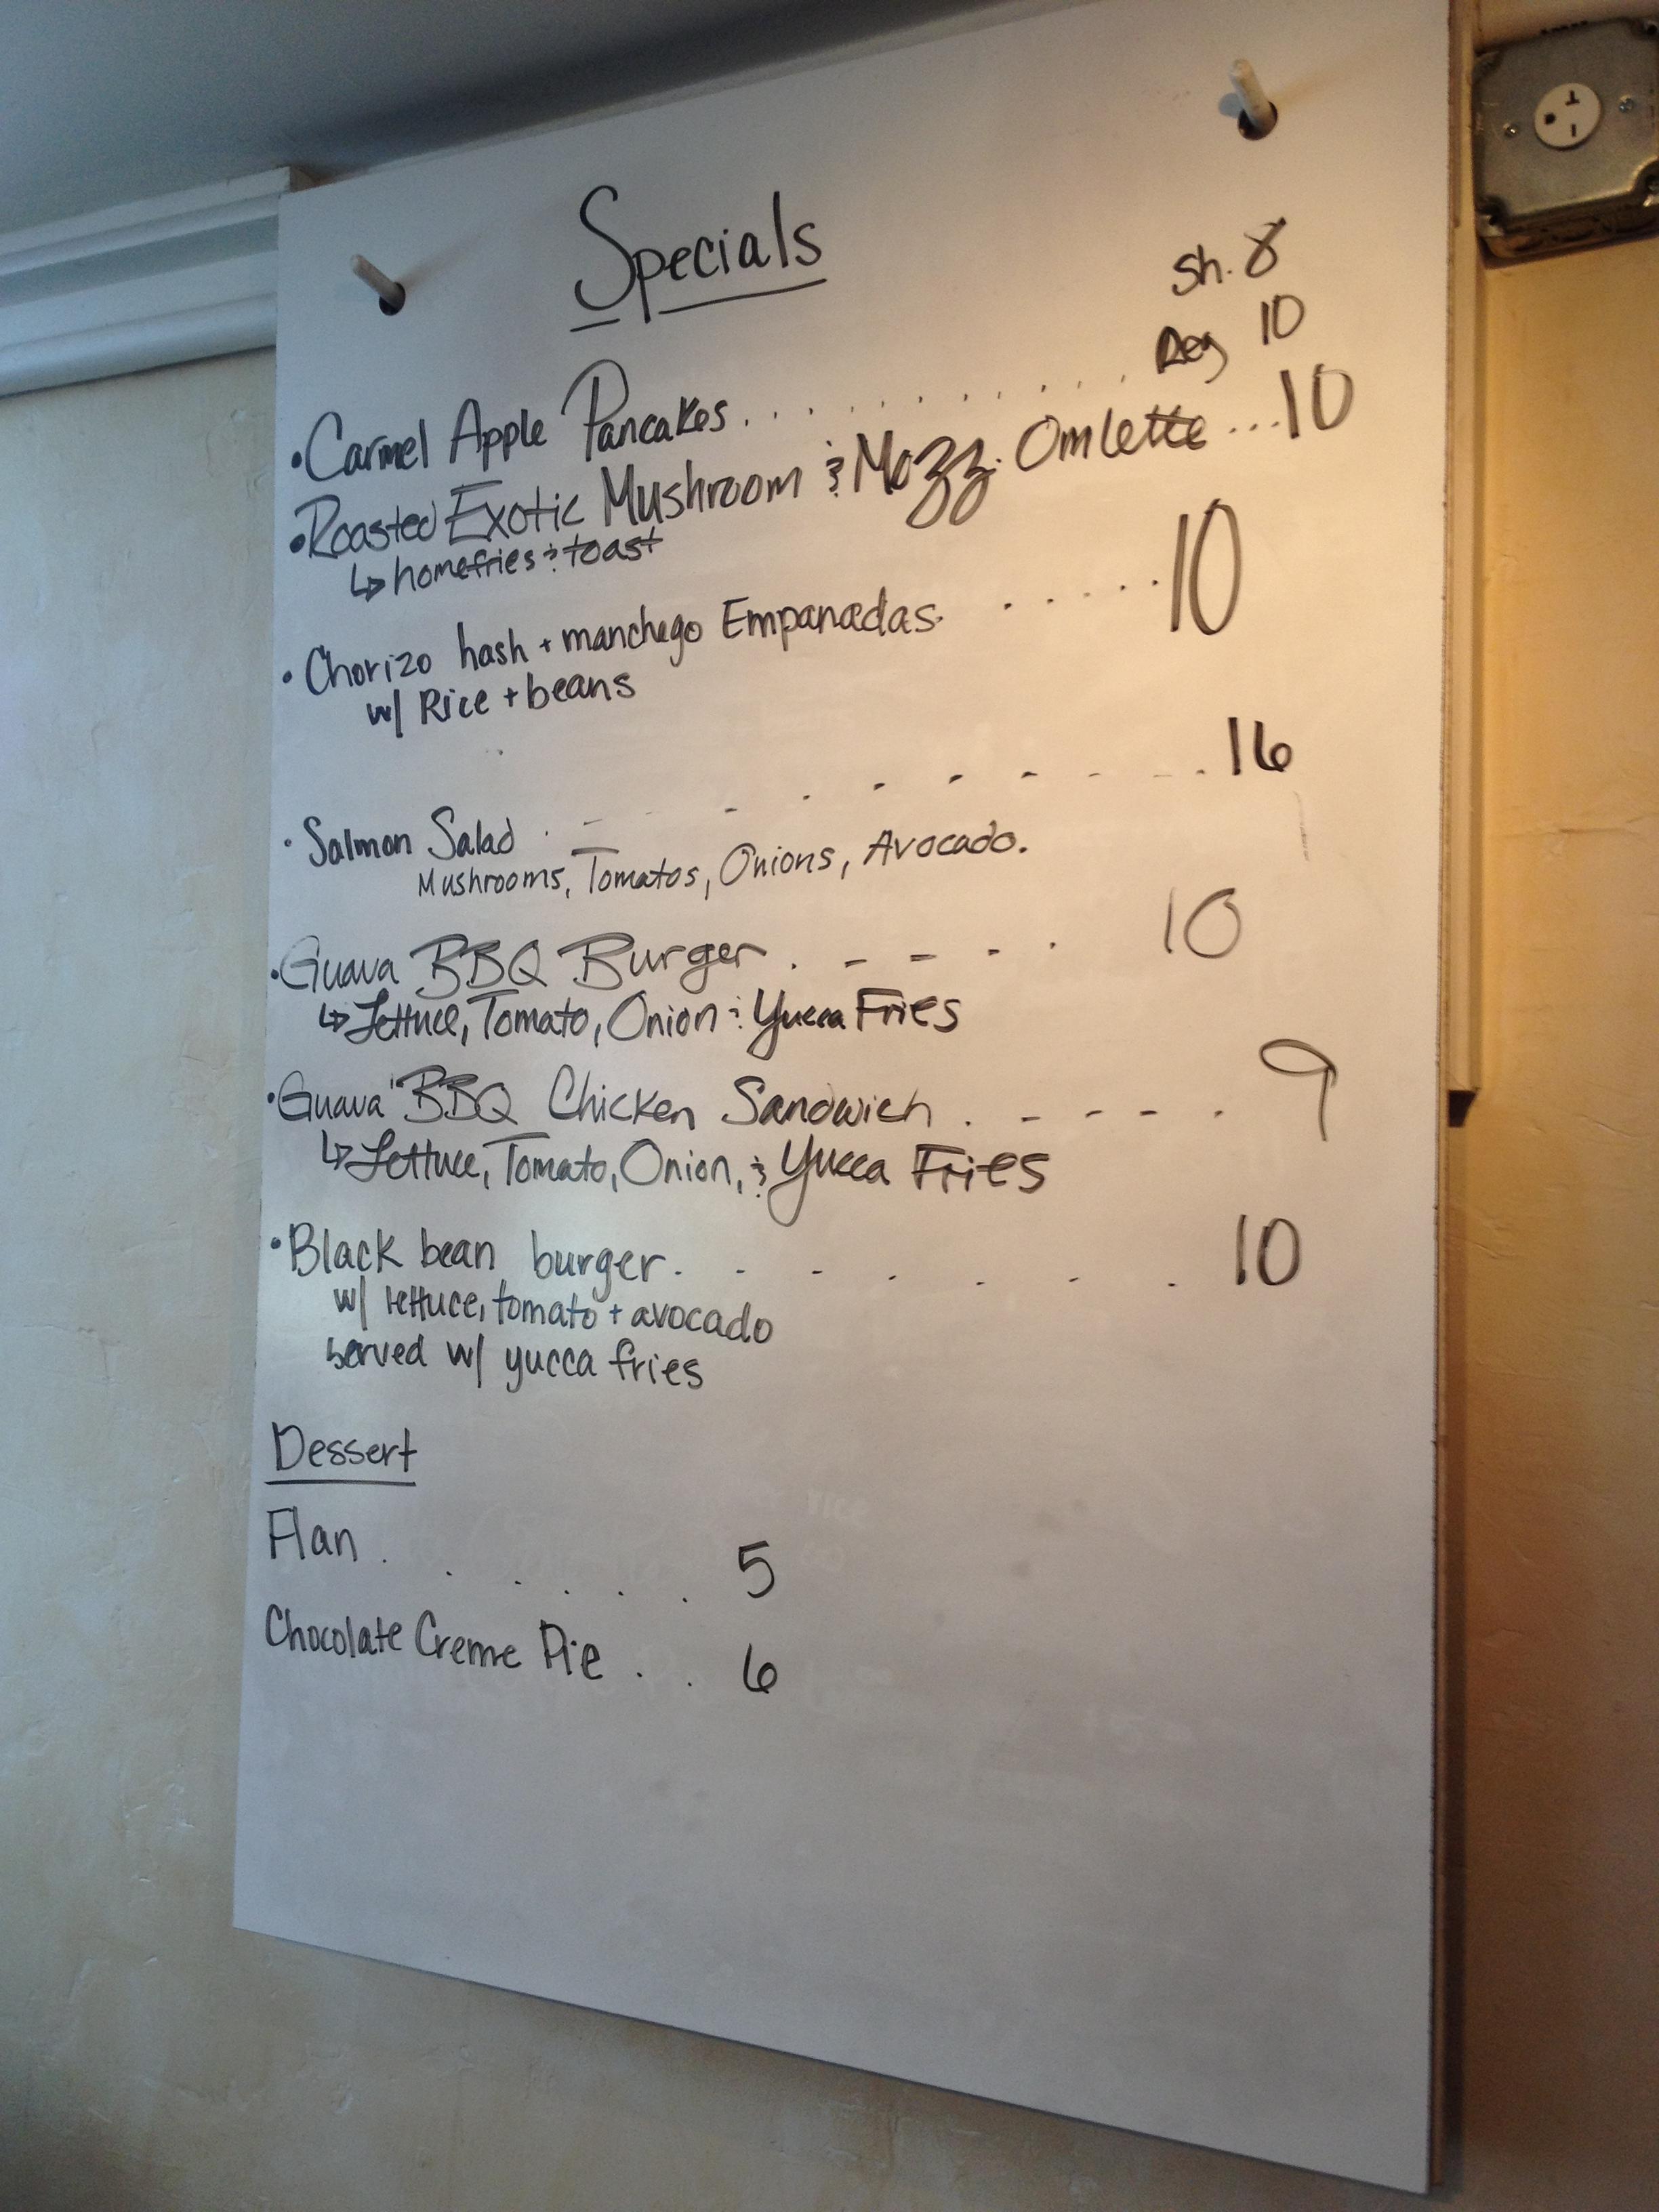 Specials
Sh. 8
Reg 10
• Carmel Apple Pancakes . . . . . . . . . .
• Roasted Exotic Mushroom & Mozz. Omlette ... 10
↳ homefries & toast
• Chorizo hash + manchego Empanadas. . . . . . 10
w/ Rice + beans
• Salmon Salad . - - - . - - - - - . 16
Mushrooms, Tomatos, Onions, Avocado.
• Guava BBQ Burger . - - - . 10
↳ Lettuce, Tomato, Onion & Yucca Fries
• Guava BBQ Chicken Sandwich . - - - - . 9
↳ Lettuce, Tomato, Onion, & Yucca Fries
• Black bean burger . - - - - - . 10
w/ lettuce, tomato + avocado
served w/ yucca fries
Dessert
Flan . . . . . . 5
Chocolate Creme Pie . . 6